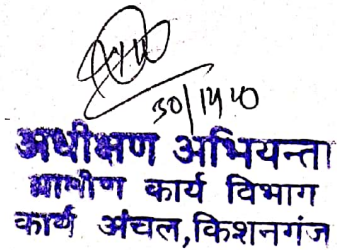 अधीक्षण अभियन्ता
ग्रामीण कार्य विभाग
कार्य अंचल,किशनगंज